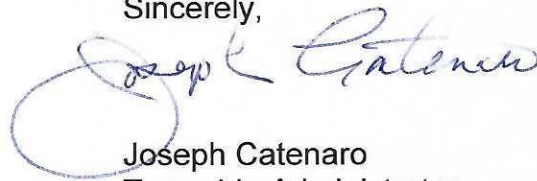 Sincerely,
Joseph Catenaro
Joseph Catenaro